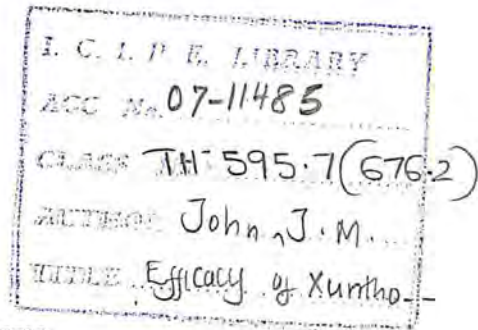 I. C. I. P. E. LIBRARY
ACC No. 07-11485
CLASS TH 595.7(676.2)
AUTHOR John, J. M.
TITLE Efficacy of Xuntho--